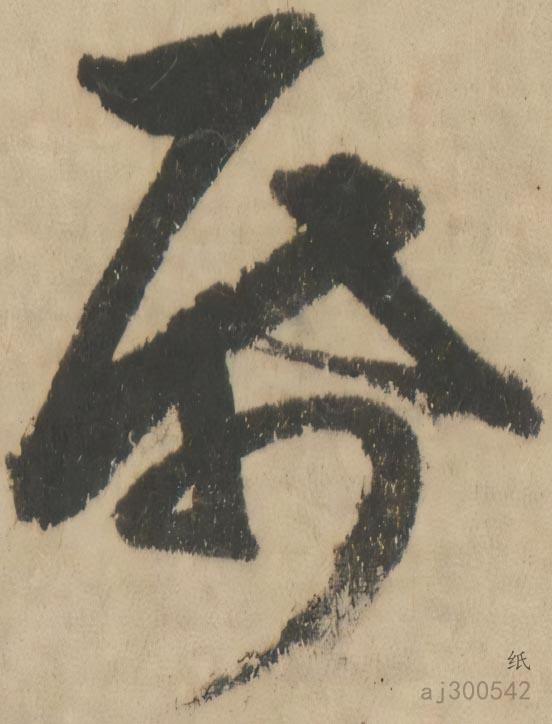 帋
纸
aj300542